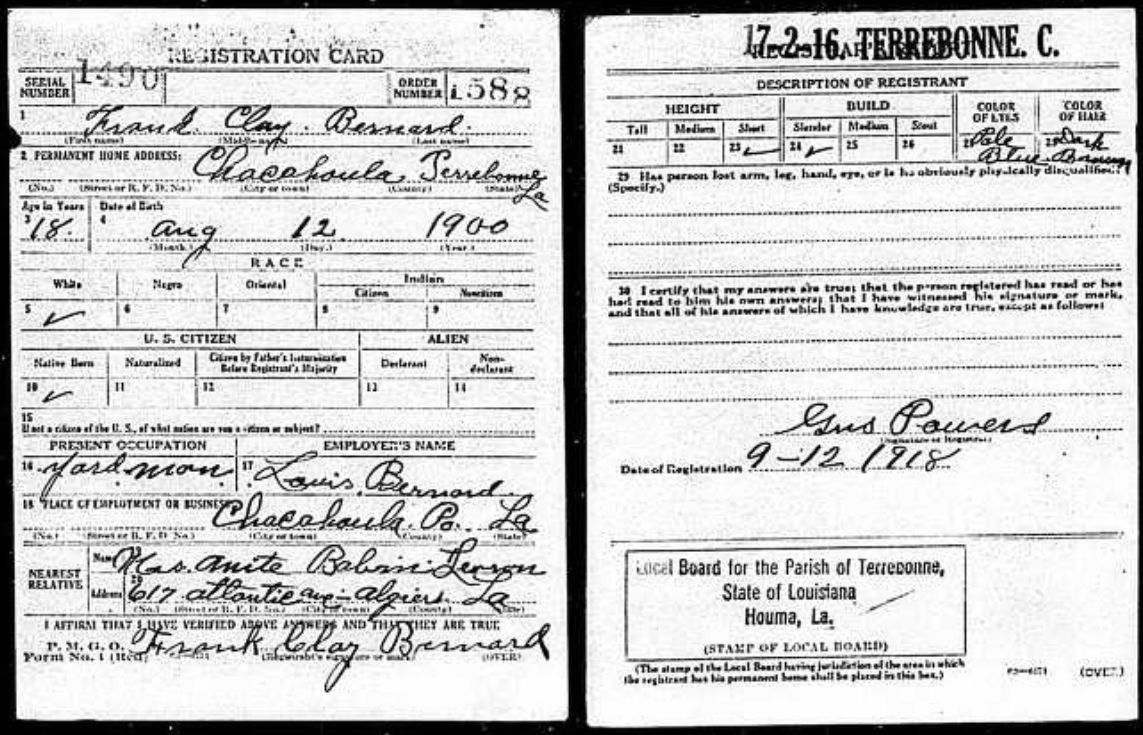 REGISTRATION CARD
SERIAL NUMBER 1490 ORDER NUMBER 1588
1 Frank Clay Bernard.
(First name) (Middle name) (Last name)
2 PERMANENT HOME ADDRESS: Chacahoula, Terrebonne La
(No.) (Street or R. F. D. No.) (City or town) (County) (State)
Age in Years Date of Birth
3 18. 4 Aug 12 1900
(Month.) (Day.) (Year.)
RACE
White Negro Oriental Indian
Citizen Noncitizen
5 ✓ 6 7 8 9
U. S. CITIZEN ALIEN
Native Born Naturalized Citizen by Father's Naturalization Before Registrant's Majority Declarant Non-declarant
10 ✓ 11 12 13 14
15
If not a citizen of the U. S., of what nation are you a citizen or subject?
PRESENT OCCUPATION EMPLOYER'S NAME
16 yard man 17 Louis Bernard
18 PLACE OF EMPLOYMENT OR BUSINESS:
Chacahoula. La
(No.) (Street or R. F. D. No.) (City or town) (County) (State)
NEAREST RELATIVE Name Mrs. Anite
Address 20 617 Atlantic ave - Algiers La
(No.) (Street or R. F. D. No.) (City or town) (County) (State)
I AFFIRM THAT I HAVE VERIFIED ABOVE ANSWERS AND THAT THEY ARE TRUE
P. M. G. O.
Form No. 1 (Red) Frank Clay Bernard
(Registrant's signature or mark) (OVER)
17-2-16. TERREBONNE. C.
DESCRIPTION OF REGISTRANT
HEIGHT BUILD COLOR OF EYES COLOR OF HAIR
Tall Medium Short Slender Medium Stout
21 22 23 ✓ 24 ✓ 25 26 27 Pale Blue 28 Dark Brown
29 Has person lost arm, leg, hand, eye, or is he obviously physically disqualified?
(Specify.)
30 I certify that my answers are true; that the person registered has read or has
had read to him his own answers; that I have witnessed his signature or mark,
and that all of his answers of which I have knowledge are true, except as follows:
Gus Powers
(Signature of Registrar)
Date of Registration 9-12 1918
Local Board for the Parish of Terrebonne,
State of Louisiana
Houma, La.
(STAMP OF LOCAL BOARD)
(The stamp of the Local Board having jurisdiction of the area in which
the registrant has his permanent home shall be placed in this box.)
(OVER)